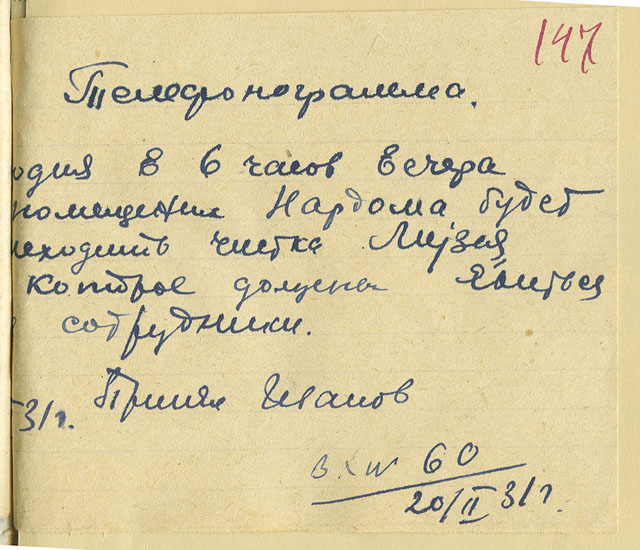 147
Телефонограмма.
одня в 6 часов вечера
помещении Нардома будет
исходить чистка Музея
которое должна явиться
сотрудники.
31г. Принял Иванов
Вх № 60
20/II 31г.